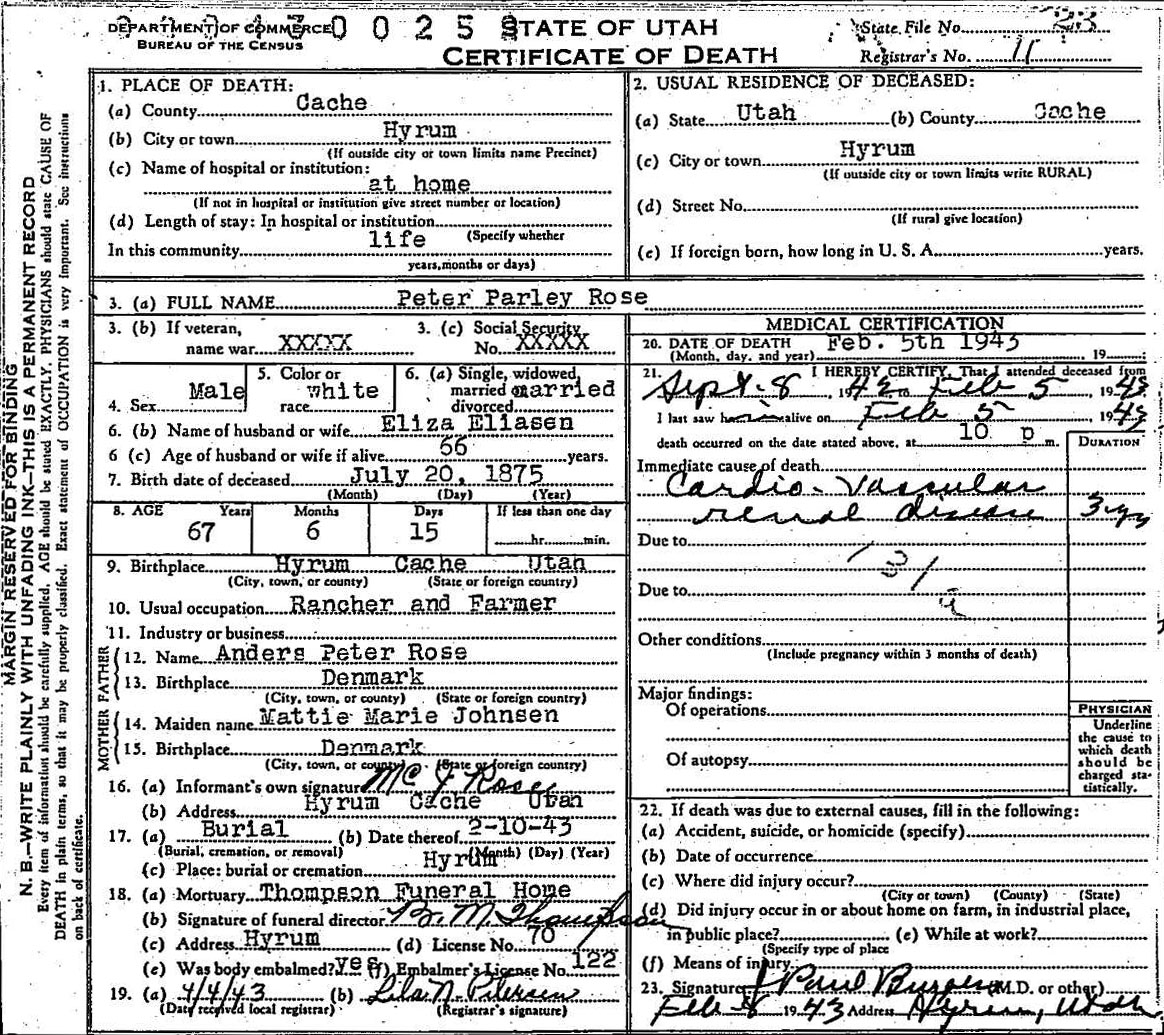 DEPARTMENT OF COMMERCE
BUREAU OF THE CENSUS
0 0 2 5
STATE OF UTAH
CERTIFICATE OF DEATH
State File No. 23
Registrar's No. 11
MARGIN RESERVED FOR BINDING
N. B.—WRITE PLAINLY WITH UNFADING INK—THIS IS A PERMANENT RECORD
Every item of information should be carefully supplied. AGE should be stated EXACTLY. PHYSICIANS should state CAUSE OF
DEATH in plain terms, so that it may be properly classified. Exact statement of OCCUPATION is very important. See instructions
on back of certificate.
1. PLACE OF DEATH:
(a) County Cache
(b) City or town Hyrum
(If outside city or town limits name Precinct)
(c) Name of hospital or institution:
at home
(If not in hospital or institution give street number or location)
(d) Length of stay: In hospital or institution
(Specify whether
In this community life
years, months or days)
2. USUAL RESIDENCE OF DECEASED:
(a) State Utah (b) County Cache
(c) City or town Hyrum
(If outside city or town limits write RURAL)
(d) Street No.
(If rural give location)
(e) If foreign born, how long in U. S. A. years.
3. (a) FULL NAME Peter Parley Rose
3. (b) If veteran,
name war XXXXX
3. (c) Social Security
No. XXXXX
4. Sex Male
5. Color or
race white
6. (a) Single, widowed,
married or married
divorced
6. (b) Name of husband or wife Eliza Eliasen
6 (c) Age of husband or wife if alive 66 years.
7. Birth date of deceased July 20, 1875
(Month) (Day) (Year)
8. AGE Years Months Days If less than one day
67 6 15 hr. min.
9. Birthplace Hyrum Cache Utah
(City, town, or county) (State or foreign country)
10. Usual occupation Rancher and Farmer
11. Industry or business
FATHER
12. Name Anders Peter Rose
13. Birthplace Denmark
(City, town, or county) (State or foreign country)
MOTHER
14. Maiden name Mattie Marie Johnsen
15. Birthplace Denmark
(City, town, or county) (State or foreign country)
16. (a) Informant's own signature Mc J Rose
(b) Address Hyrum Cache Utah
17. (a) Burial (b) Date thereof 2-10-43
(Burial, cremation, or removal) (Month) (Day) (Year)
(c) Place: burial or cremation Hyrum
18. (a) Mortuary Thompson Funeral Home
(b) Signature of funeral director B. M. Thompson
(c) Address Hyrum (d) License No. 70
(e) Was body embalmed? yes (f) Embalmer's License No. 122
19. (a) 4/4/43 (b) Lila N. Petersen
(Date received local registrar) (Registrar's signature)
MEDICAL CERTIFICATION
20. DATE OF DEATH Feb. 5th 1943
(Month, day, and year) 19
21. I HEREBY CERTIFY, That I attended deceased from
Sept. 8, 1942 to Feb 5, 1943
I last saw him alive on Feb 5 1943
death occurred on the date stated above, at 10 p m.
DURATION
Immediate cause of death
Cardio-Vascular
renal disease 3 yrs
Due to
131
Due to
a
Other conditions
(Include pregnancy within 3 months of death)
Major findings:
Of operations
Of autopsy
PHYSICIAN
Underline
the cause to
which death
should be
charged sta-
tistically.
22. If death was due to external causes, fill in the following:
(a) Accident, suicide, or homicide (specify)
(b) Date of occurrence
(c) Where did injury occur?
(City or town) (County) (State)
(d) Did injury occur in or about home on farm, in industrial place,
in public place? (e) While at work?
(Specify type of place
(f) Means of injury
23. Signature J Paul Burgess (M.D. or other)
Feb-8 1943 Address Hyrum, Utah